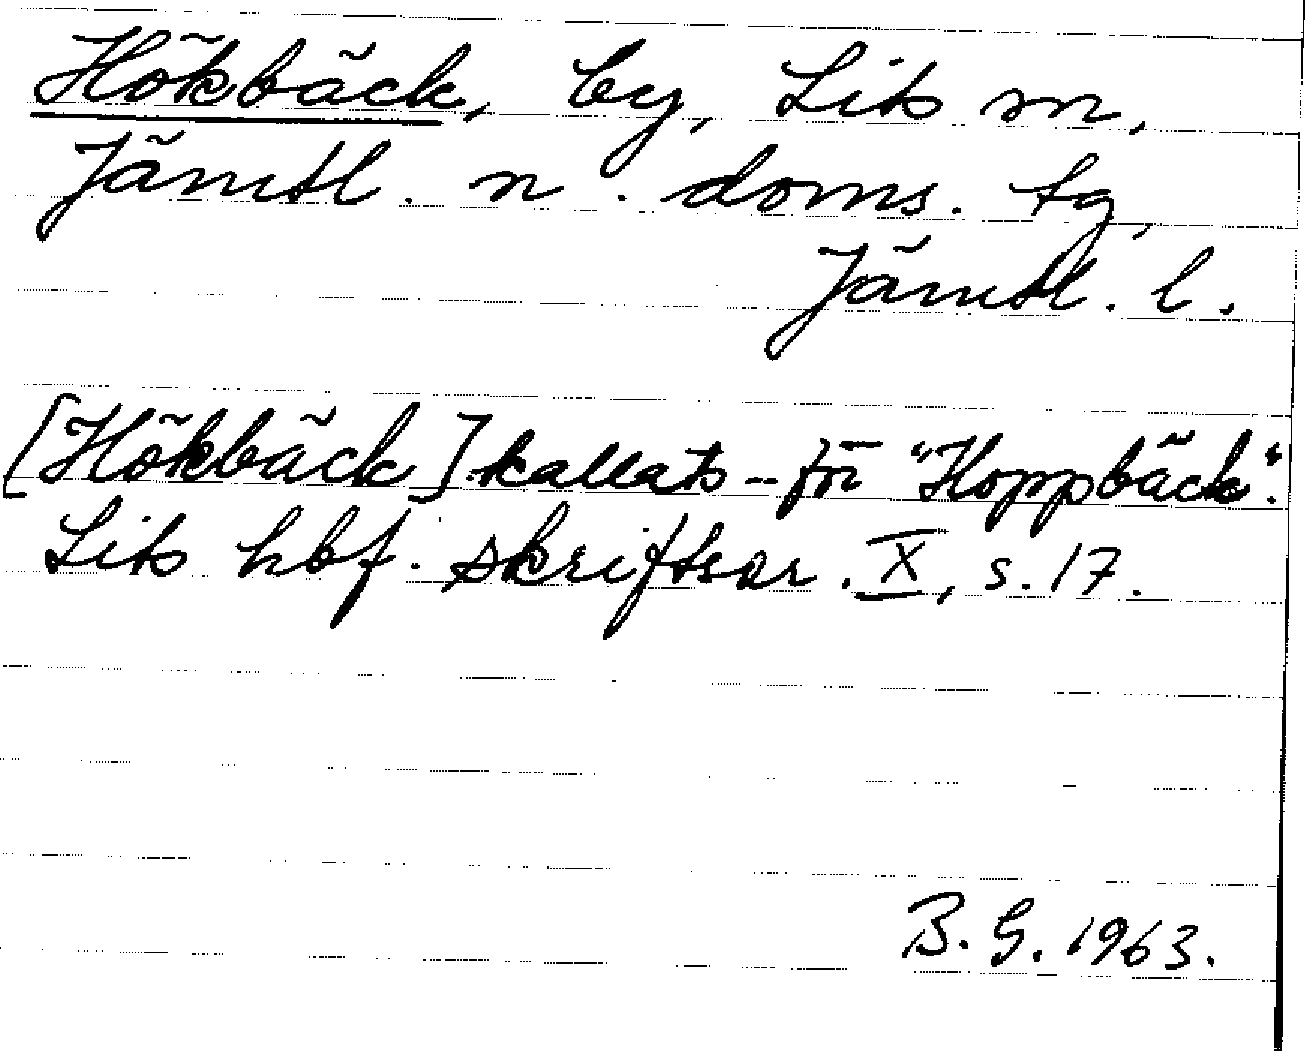 Hökbäck, by, Lits sn,
Jämtl. n. doms. tg,
Jämtl. l.
[Hökbäck] kallats -- för "Hoppbäck".
Lits hbf. skriftser. X, s. 17.
B. G. 1963.